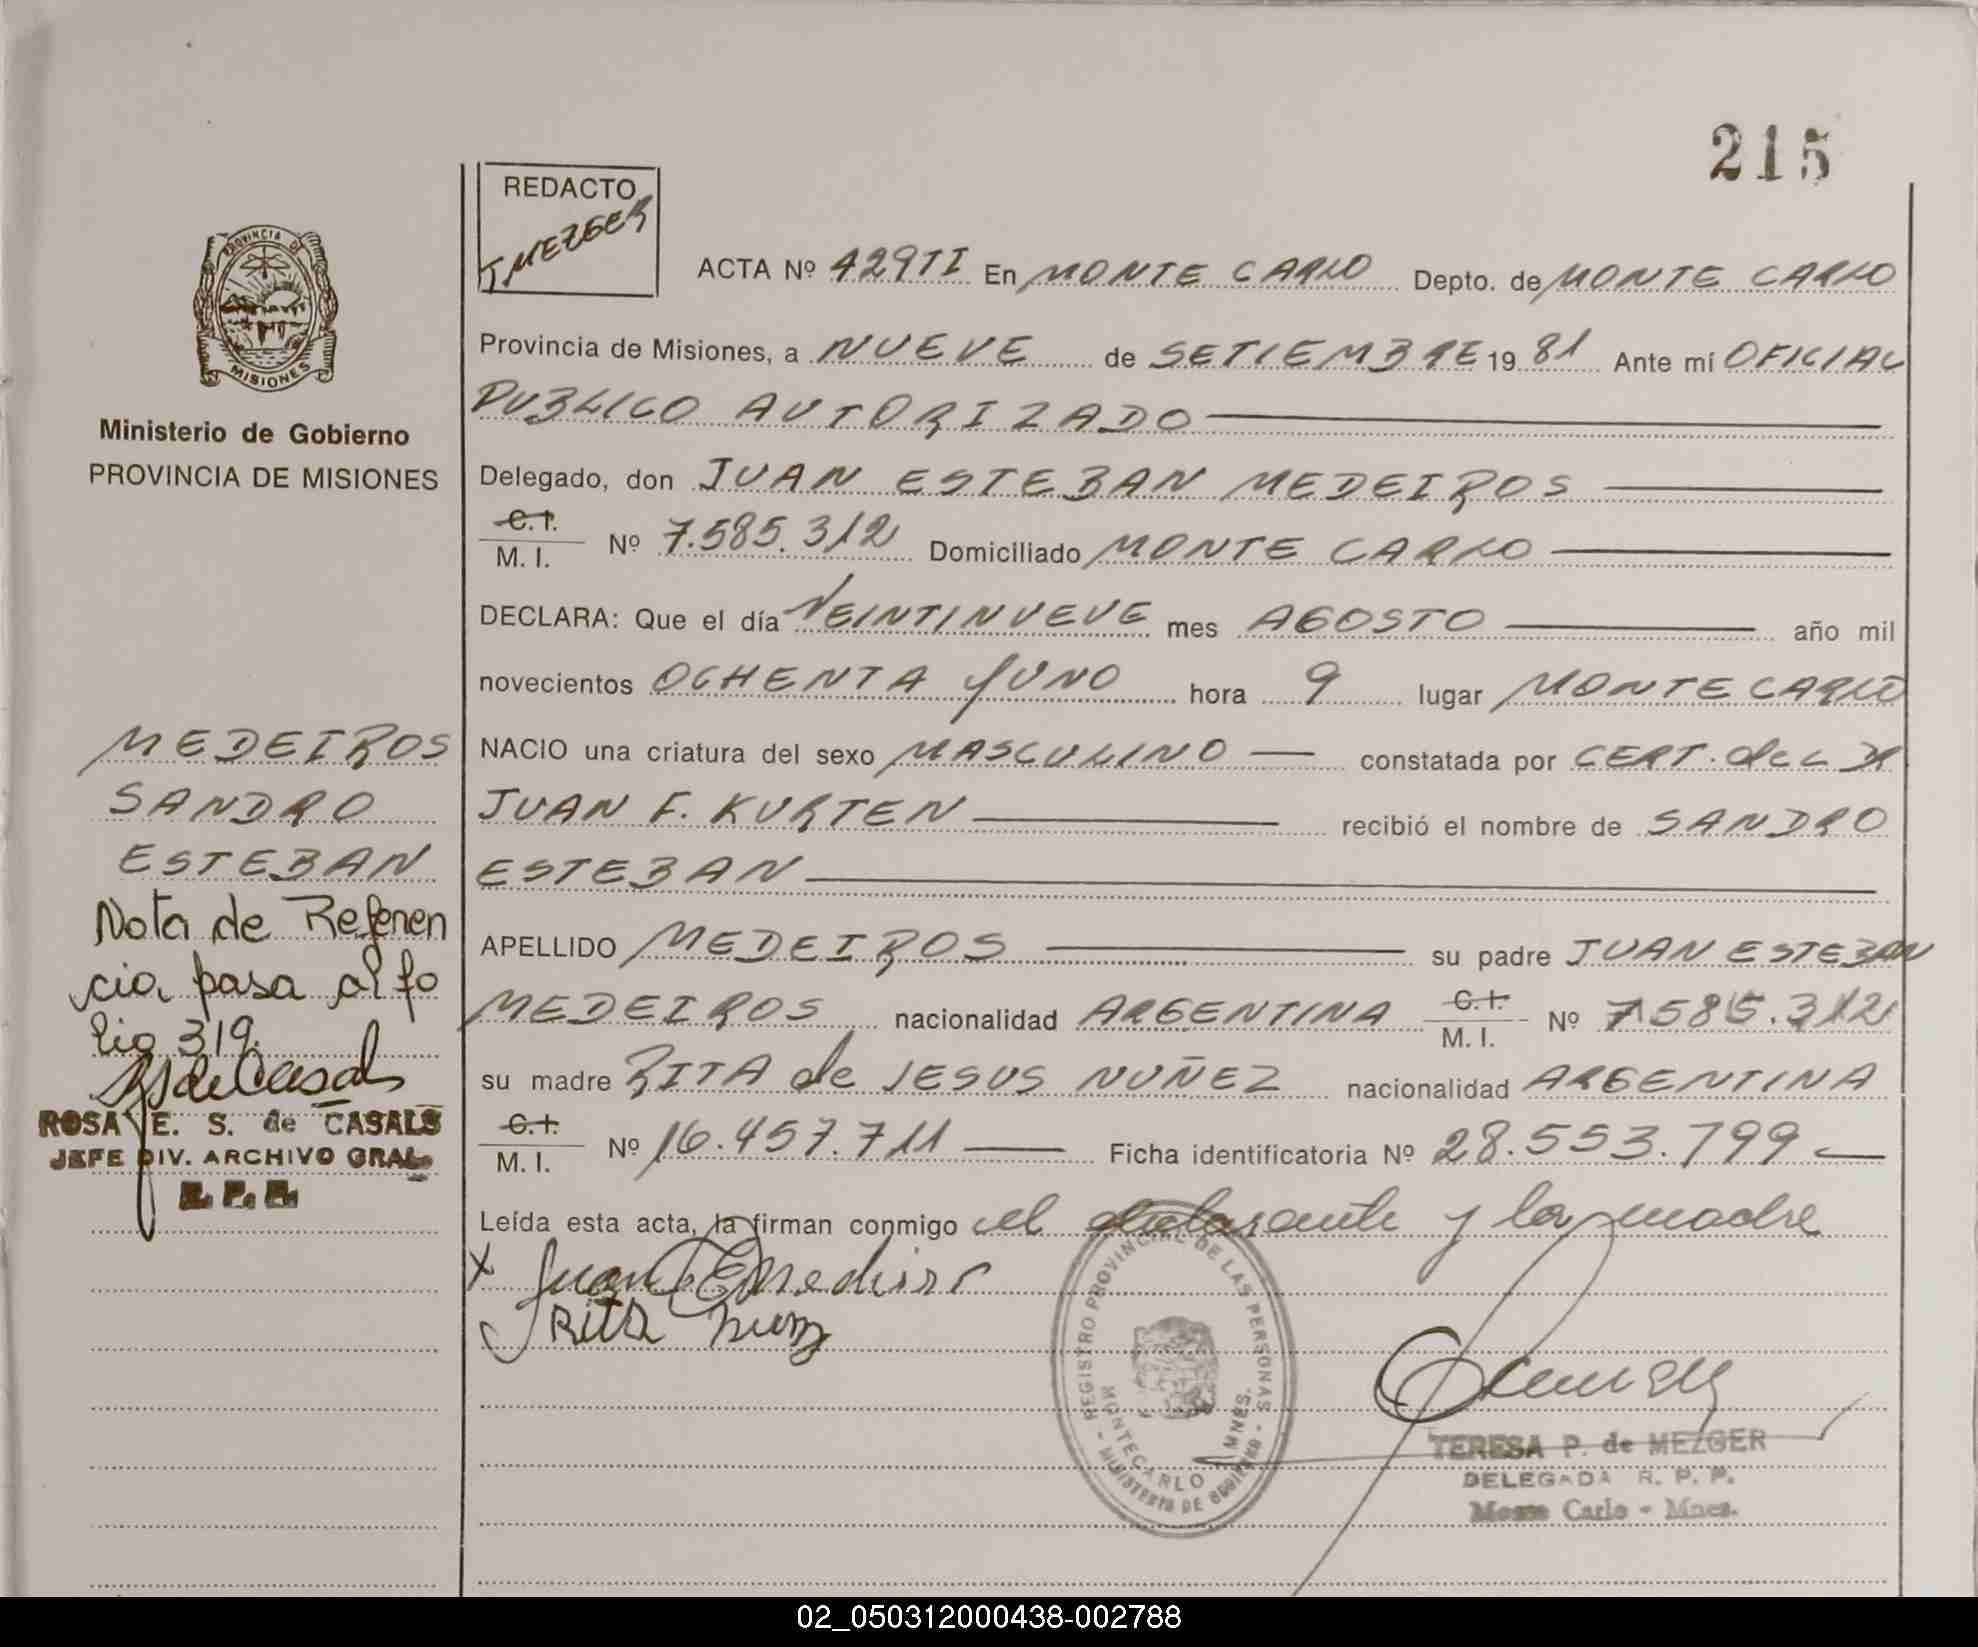 215
REDACTO
T MEZGER
PROVINCIA DE
MISIONES
Ministerio de Gobierno
PROVINCIA DE MISIONES
ACTA Nº 429TI En MONTE CARLO Depto. de MONTE CARLO
Provincia de Misiones, a NUEVE de SETIEMBRE 19 81 Ante mí OFICIAL
PUBLICO AUTORIZADO
Delegado, don JUAN ESTEBAN MEDEIROS
C.I.
M. I. Nº 7.585.312 Domiciliado MONTE CARLO
DECLARA: Que el día VEINTINUEVE mes AGOSTO año mil
novecientos OCHENTA Y UNO hora 9 lugar MONTE CARLO
NACIO una criatura del sexo MASCULINO constatada por CERT. del DR
JUAN F. KURTEN recibió el nombre de SANDRO
ESTEBAN
APELLIDO MEDEIROS su padre JUAN ESTEBAN
MEDEIROS nacionalidad ARGENTINA C.I. M. I. Nº 7.585.312
su madre RITA de JESUS NUÑEZ nacionalidad ARGENTINA
C.I.
M. I. Nº 16.457.711 Ficha identificatoria Nº 28.553.799
Leída esta acta, la firman conmigo el declarante y la madre
X Juan E Medeiros
Rita Nuñez
MEDEIROS
SANDRO
ESTEBAN
Nota de Referen
cia, pasa al fo
lio 319.
RSdeCasals
ROSA E. S. de CASALS
JEFE DIV. ARCHIVO GRAL.
R. P. P.
REGISTRO PROVINCIAL DE LAS PERSONAS
MINISTERIO DE GOBIERNO
MONTECARLO MNES.
TERESA P. de MEZGER
DELEGADA R. P. P.
Monte Carlo - Mnes.
02_050312000438-002788